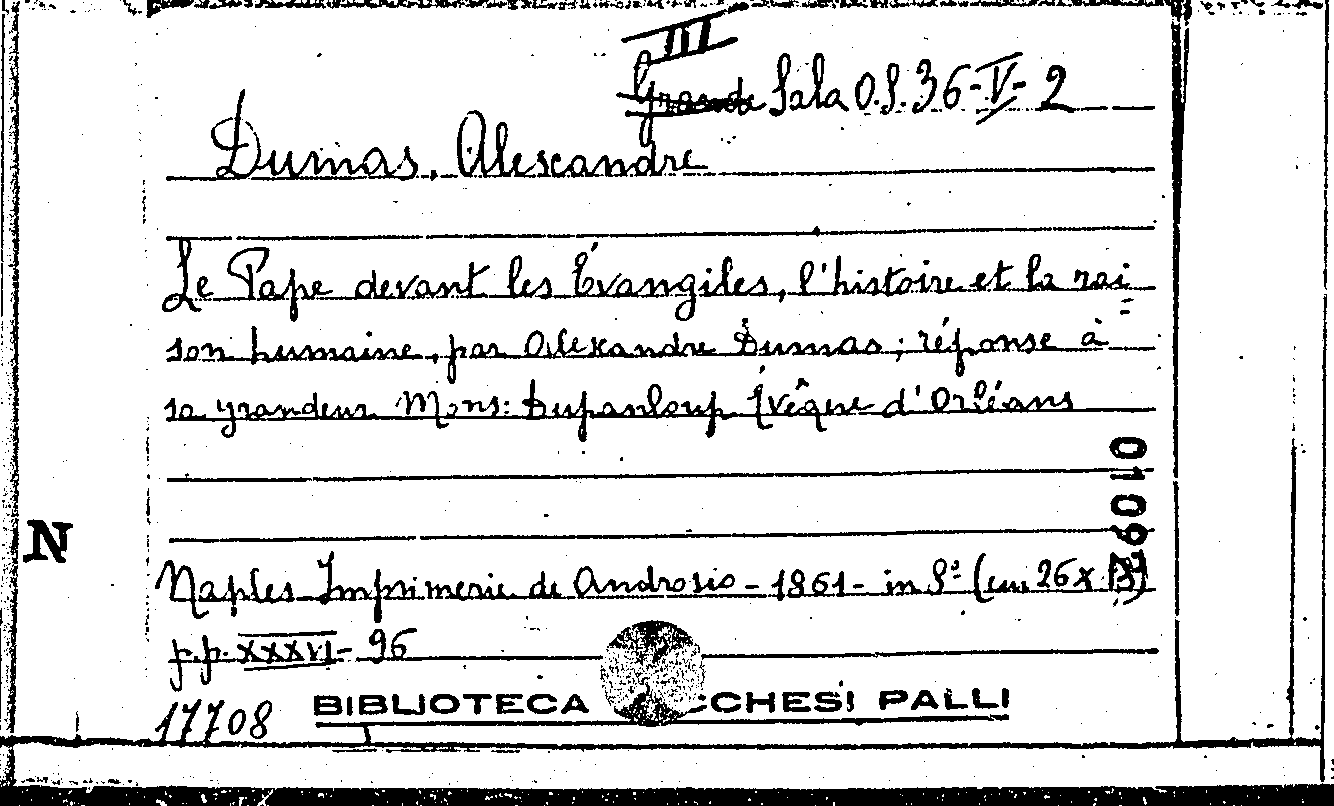 III
Grande Sala O.S. 36-V-2
Dumas, Alexandre
Le Pape devant les Évangiles, l'histoire et la rai
=
son humaine, par Alexandre Dumas; réponse à
sa grandeur Mons: Dupanloup Évêque d'Orléans
N
Naples Imprimerie de Androsio - 1861 - in 8º (cm 26 x 18)
p.p. XXXVI - 96
17708
BIBLIOTECA CCHESI PALLI